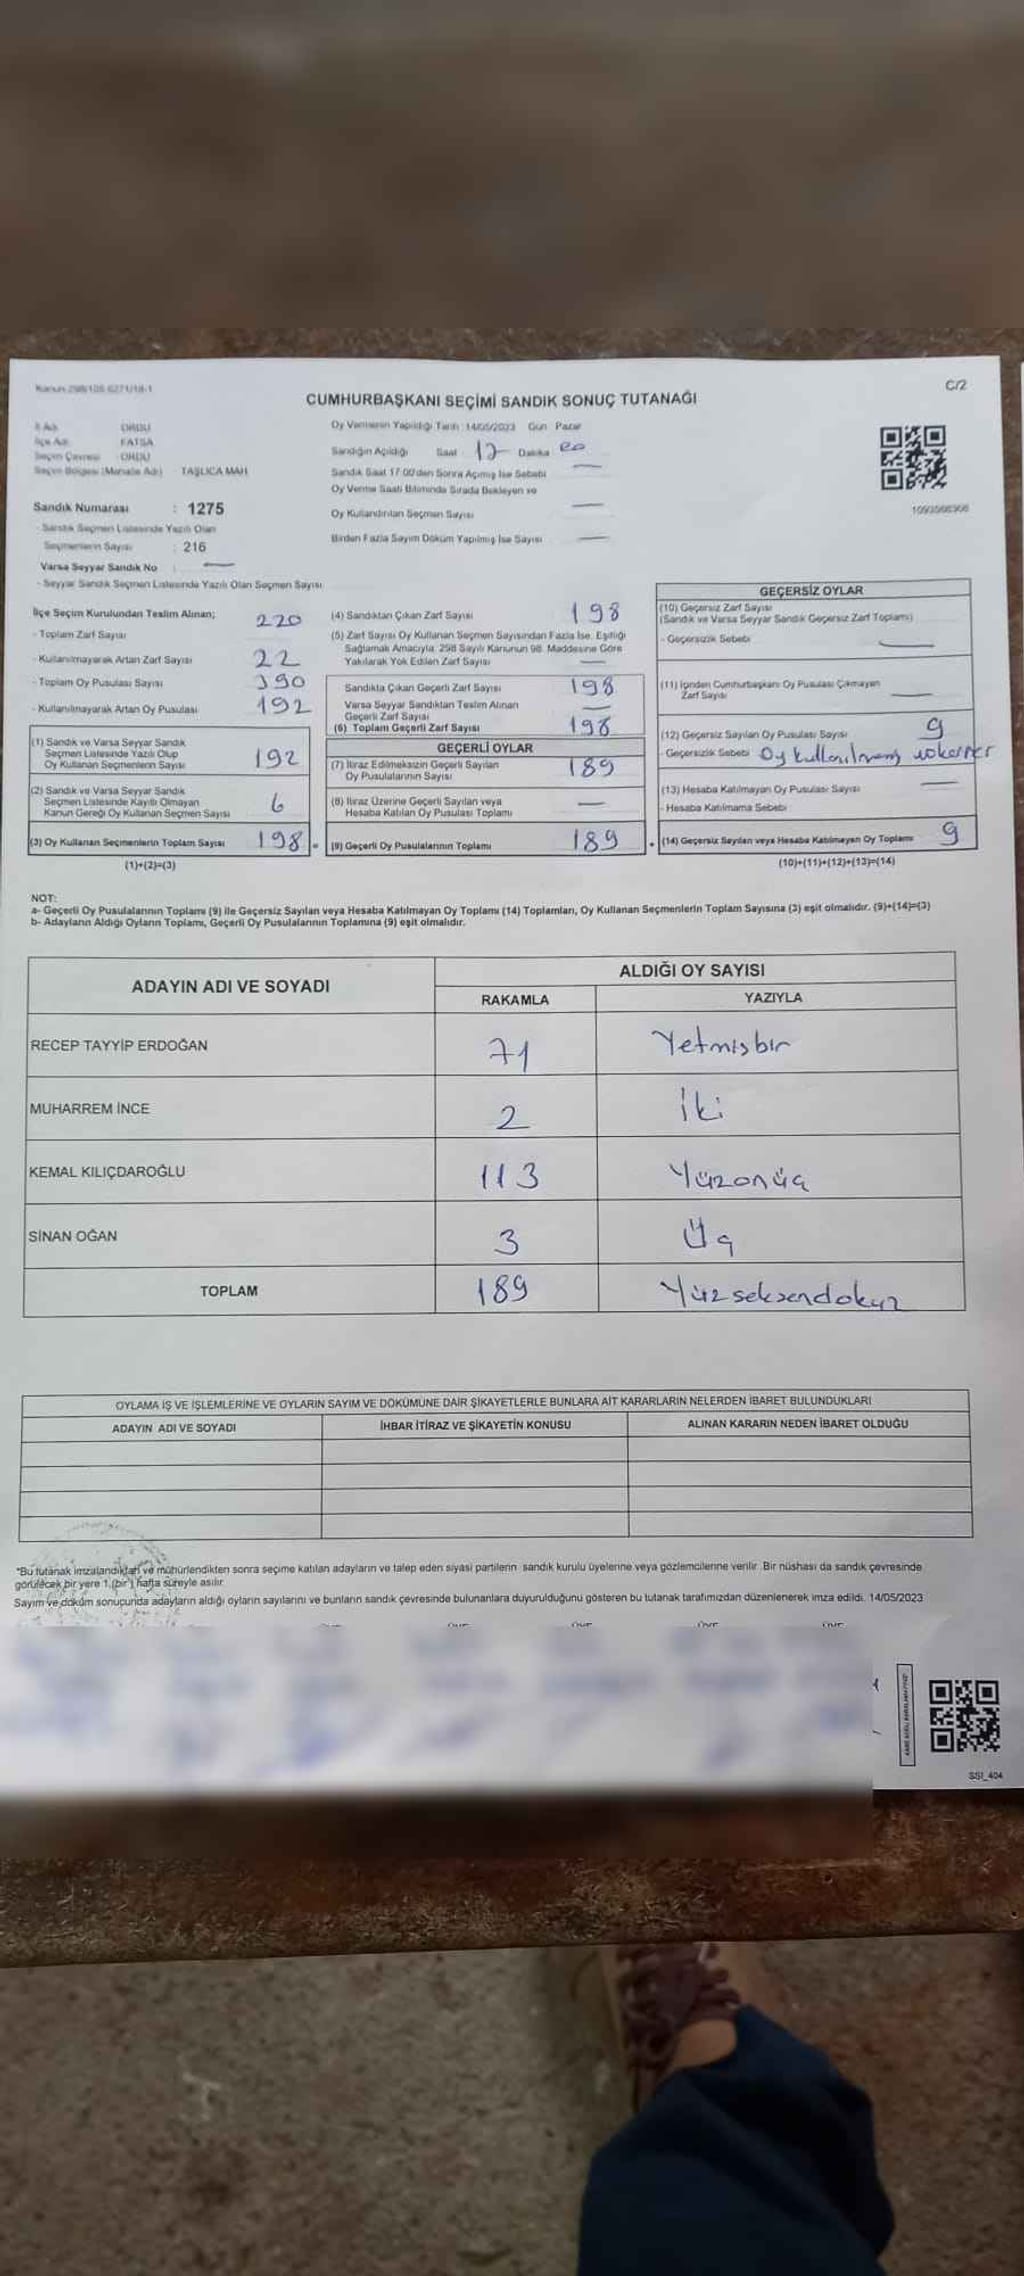 Kanun 298/105 6271/18-1
C/2
CUMHURBAŞKANI SEÇİMİ SANDIK SONUÇ TUTANAĞI
İl Adı ORDU
İlçe Adı FATSA
Seçim Çevresi ORDU
Seçim Bölgesi (Mahalle Adı) TAŞLICA MAH.
Sandık Numarası : 1275
- Sandık Seçmen Listesinde Yazılı Olan
Seçmenlerin Sayısı : 216
Varsa Seyyar Sandık No : —
- Seyyar Sandık Seçmen Listesinde Yazılı Olan Seçmen Sayısı
Oy Vermenin Yapıldığı Tarih 14/05/2023 Gün Pazar
Sandığın Açıldığı Saat 17 Dakika
Sandık Saat 17:00'den Sonra Açılmış İse Sebebi —
Oy Verme Saati Bitiminde Sırada Bekleyen ve
Oy Kullandırılan Seçmen Sayısı —
Birden Fazla Sayım Döküm Yapılmış İse Sayısı —
İlçe Seçim Kurulundan Teslim Alınan;
- Toplam Zarf Sayısı 220
- Kullanılmayarak Artan Zarf Sayısı 22
- Toplam Oy Pusulası Sayısı 390
- Kullanılmayarak Artan Oy Pusulası 192
(1) Sandık ve Varsa Seyyar Sandık
Seçmen Listesinde Yazılı Olup
Oy Kullanan Seçmenlerin Sayısı 192
(2) Sandık ve Varsa Seyyar Sandık
Seçmen Listesinde Kayıtlı Olmayan
Kanun Gereği Oy Kullanan Seçmen Sayısı 6
(3) Oy Kullanan Seçmenlerin Toplam Sayısı 198 =
(1)+(2)=(3)
(4) Sandıktan Çıkan Zarf Sayısı 198
(5) Zarf Sayısı Oy Kullanan Seçmen Sayısından Fazla İse, Eşitliği
Sağlamak Amacıyla, 298 Sayılı Kanunun 98. Maddesine Göre
Yakılarak Yok Edilen Zarf Sayısı —
Sandıkta Çıkan Geçerli Zarf Sayısı 198
Varsa Seyyar Sandıktan Teslim Alınan
Geçerli Zarf Sayısı —
(6) Toplam Geçerli Zarf Sayısı 198
GEÇERLİ OYLAR
(7) İtiraz Edilmeksizin Geçerli Sayılan
Oy Pusulalarının Sayısı 189
(8) İtiraz Üzerine Geçerli Sayılan veya
Hesaba Katılan Oy Pusulası Toplamı —
(9) Geçerli Oy Pusulalarının Toplamı 189 +
GEÇERSİZ OYLAR
(10) Geçersiz Zarf Sayısı
(Sandık ve Varsa Seyyar Sandık Geçersiz Zarf Toplamı)
- Geçersizlik Sebebi —
(11) İçinden Cumhurbaşkanı Oy Pusulası Çıkmayan
Zarf Sayısı —
(12) Geçersiz Sayılan Oy Pusulası Sayısı 9
- Geçersizlik Sebebi Oy kullanılmamış
(13) Hesaba Katılmayan Oy Pusulası Sayısı —
- Hesaba Katılmama Sebebi
(14) Geçersiz Sayılan veya Hesaba Katılmayan Oy Toplamı 9
(10)+(11)+(12)+(13)=(14)
NOT:
a- Geçerli Oy Pusulalarının Toplamı (9) ile Geçersiz Sayılan veya Hesaba Katılmayan Oy Toplamı (14) Toplamları, Oy Kullanan Seçmenlerin Toplam Sayısına (3) eşit olmalıdır. (9)+(14)=(3)
b- Adayların Aldığı Oyların Toplamı, Geçerli Oy Pusulalarının Toplamına (9) eşit olmalıdır.
ADAYIN ADI VE SOYADI
ALDIĞI OY SAYISI
RAKAMLA YAZIYLA
RECEP TAYYİP ERDOĞAN 71 Yetmişbir
MUHARREM İNCE 2 İki
KEMAL KILIÇDAROĞLU 113 Yüzonüç
SİNAN OĞAN 3 Üç
TOPLAM 189 Yüzseksendokuz
OYLAMA İŞ VE İŞLEMLERİNE VE OYLARIN SAYIM VE DÖKÜMÜNE DAİR ŞİKAYETLERLE BUNLARA AİT KARARLARIN NELERDEN İBARET BULUNDUKLARI
ADAYIN ADI VE SOYADI İHBAR İTİRAZ VE ŞİKAYETİN KONUSU ALINAN KARARIN NEDEN İBARET OLDUĞU
*Bu tutanak imzalandıktan ve mühürlendikten sonra seçime katılan adayların ve talep eden siyasi partilerin sandık kurulu üyelerine veya gözlemcilerine verilir. Bir nüshası da sandık çevresinde
görülecek bir yere 1 (bir) hafta süreyle asılır.
Sayım ve döküm sonucunda adayların aldığı oyların sayılarını ve bunların sandık çevresinde bulunanlara duyurulduğunu gösteren bu tutanak tarafımızdan düzenlenerek imza edildi. 14/05/2023
SSI_404